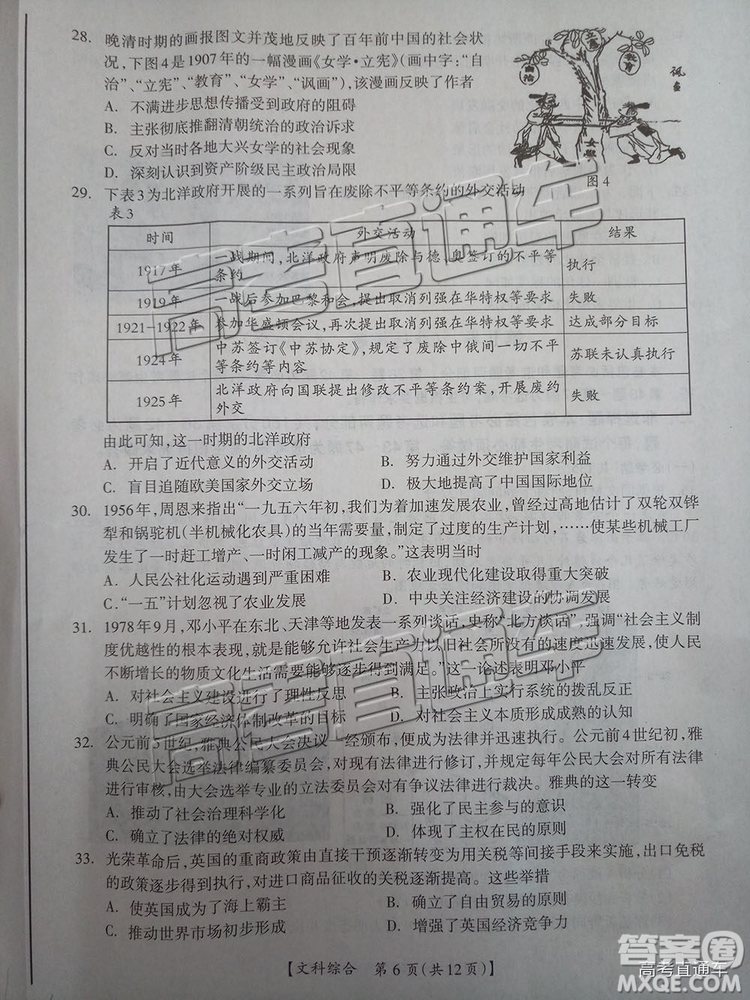 28. 晚清时期的画报图文并茂地反映了百年前中国的社会状
况，下图4是1907年的一幅漫画《女学·立宪》（画中字：“自
治”、“立宪”、“教育”、“女学”、“讽画”），该漫画反映了作者
A. 不满进步思想传播受到政府的阻碍
B. 主张彻底推翻清朝统治的政治诉求
C. 反对当时各地大兴女学的政治举措
D. 深刻认识到资产阶级民主政治局限
自治
立宪
教育
女学
图4
29. 下表3为北洋政府开展的一系列旨在废除不平等条约的外交活动
表3
时间 外交活动 结果
1917年 一战期间，北洋政府声明废除与德、奥签订的不平等
条约 执行
1919年 一战后参加巴黎和会，提出取消列强在华特权等要求 失败
1921-1922年 参加华盛顿会议，再次提出取消列强在华特权等要求 达成部分目标
1924年 中苏签订《中苏协定》，规定了废除中俄间一切不平
等条约等内容 苏联未认真执行
1925年 北洋政府向国联提出修改不平等条约案，开展废约
外交 失败
由此可知，这一时期的北洋政府
A. 开启了近代意义的外交活动 B. 努力通过外交维护国家利益
C. 盲目追随欧美国家外交立场 D. 极大地提高了中国国际地位
30. 1956年，周恩来指出“一九五六年初，我们为着加速发展农业，曾经过高地估计了双轮双铧
犁和锅驼机（半机械化农具）的当年需要量，制定了过度的生产计划，……使某些机械工厂
发生了一时赶工增产、一时闲工减产的现象。”这表明当时
A. 人民公社化运动遇到严重困难 B. 农业现代化建设取得重大突破
C. “一五”计划忽视了农业发展 D. 中央关注经济建设的协调发展
31. 1978年9月，邓小平在东北、天津等地发表一系列谈话，史称“北方谈话”，强调“社会主义制
度优越性的根本表现，就是能够允许社会生产力以旧社会所没有的速度迅速发展，使人民
不断增长的物质文化生活需要能够逐步得到满足。”这一论述表明邓小平
A. 对社会主义建设进行了理性反思 B. 主张政治上实行系统的拨乱反正
C. 明确了国家经济体制改革的目标 D. 对社会主义本质形成成熟的认知
32. 公元前5世纪，雅典公民大会决议一经颁布，便成为法律并迅速执行。公元前4世纪初，雅
典公民大会选举法律编纂委员会，对现有法律进行整理，并规定每年公民大会对所有法律
进行审核，由大会选举专业的立法委员会对有争议法律进行裁决。雅典的这一转变
A. 推动了社会治理科学化 B. 强化了民主参与的意识
C. 确立了法律的绝对权威 D. 体现了主权在民的原则
33. 光荣革命后，英国的重商政策由直接干预逐渐转变为用关税等间接手段来实施，出口免税
的政策逐步得到执行，对进口商品征收的关税逐渐提高。这些举措
A. 使英国成为了海上霸主 B. 确立了自由贸易的原则
C. 推动世界市场初步形成 D. 增强了英国经济竞争力
【文科综合 第6页（共12页）】
高考直通车
高考直通车
答案圈
高考直通车
MXQE.COM